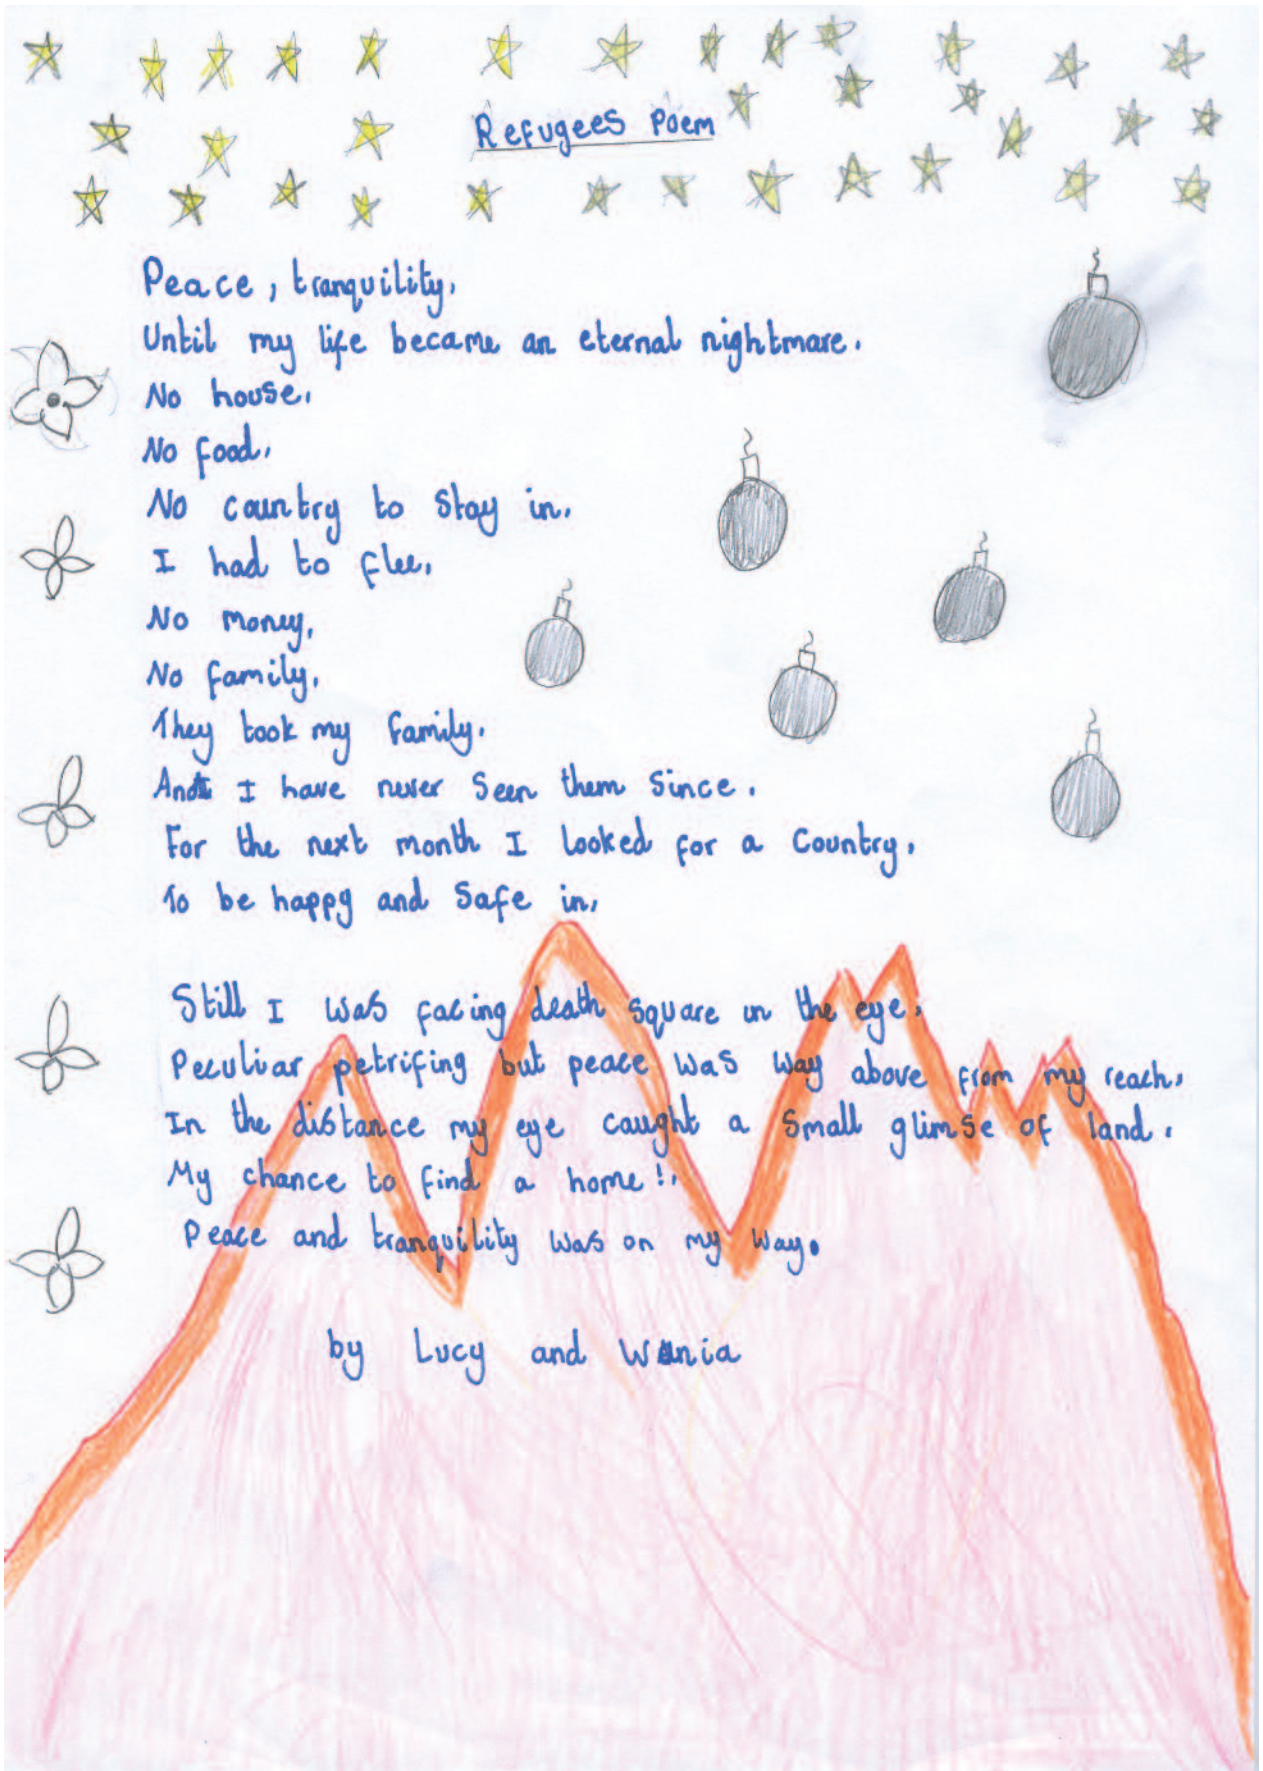 Refugees Poem
Peace, tranquility.
Until my life became an eternal nightmare.
No house.
No food.
No country to stay in.
I had to flee.
No money.
No family.
They took my family.
And I have never seen them since.
For the next month I looked for a country.
To be happy and safe in.
Still I was facing death square in the eye.
Peculiar petrifing but peace was way above from my reach.
In the distance my eye caught a small glimse of land.
My chance to find a home!.
Peace and tranquility was on my way.
by Lucy and Wania